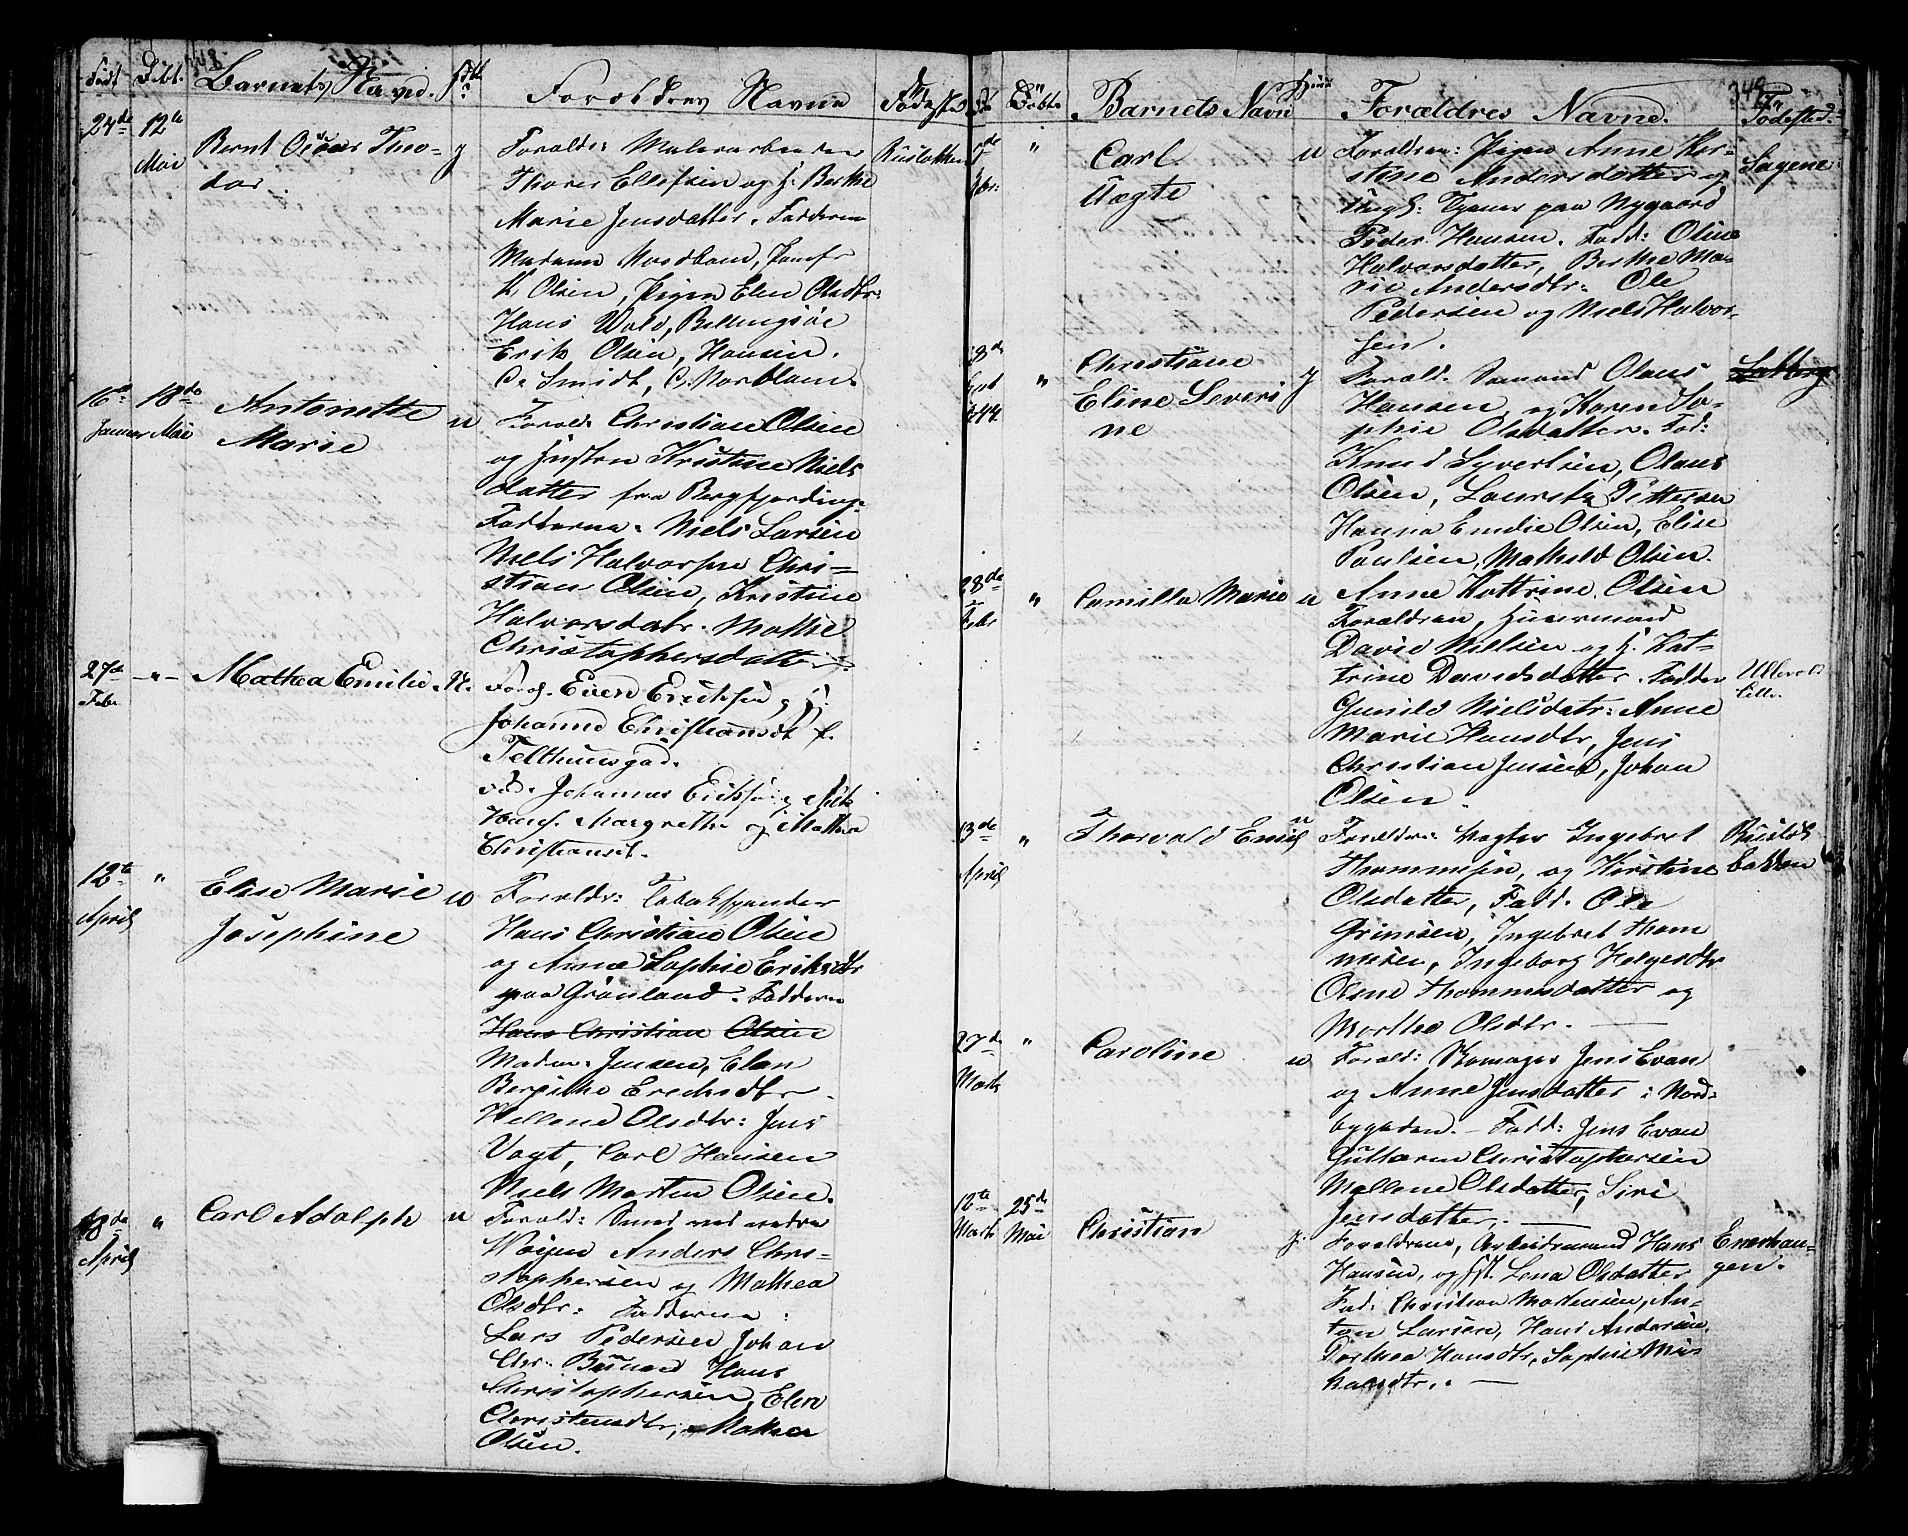 348.
Födt Döbt. Barnets Navn. Forældres Navne Födested
12te Mai
Bernt Theo-
dor.
Foræld:
Thorer Ellefsen og H: Berthe
Marie Jensdatter. Fadderne
Madame
Olsen, Pigen Elen Olsdtr:
Hans Wold, Bellingsöe
Erik Olsen, Hansen.
C. Smidt,
16de Januar 18de Mai
Antonette
Marie
u
Foræld: Christian Olsen
og Kristine Niels
datter fra
Fadderne: Niels Larsen
Niels Halvorsen Chri-
stian Olsen, Kristine
Halvorsdatr. Mathie
Christophersdatter
27de Febr -"-
Mathea Emilie
Foræ. Even Eriksen og H:
Johanne Christiansdt
Telthuusgad.
Johannes Eriksen
Margrethe og Mathea
Christiansdt.
12te April "
Elise Marie
Josephine
u
Foræld: Tobakspinder
Hans Christian Olsen
og Anne Sophie Eriksdtr
paa Grönland. Fadderne
Hans Christian Olsen
Madm: Jensen, Elen
Erichsdtr.
Hellene Olsdtr: Jens
Vogt, Carl Hansen
Niels Martin Olsen.
18de April "
Carl Adolph
u
Foræld: Smed ved nedre
Vöyen Anders Chri-
stophersen og Mathea
Olsdtr: Fadderne:
Lars Pedersen Johan
Chr. Hans
Christophersen, Elen
Christensdtr, Mathea
Olsen.
349.
Döbte Barnets Navn Forældres Navne. Födested.
"
Carl
Uægte
u
Forældren: Pigen Anne Ker-
stine Andersdatter og
Ungk: Tjener paa Nygaard
Peder Hansen. Fadd: Oline
Halvorsdatter, Berthe Ma-
rie Andersdtr: Ole
Pedersen og Niels Halvor-
sen.
Sagene
18de 1844. "
Christiane
Eline Severi
ne
Foræld. Olaus
Hansen og Karen So-
phie Olsdatter. Fad:
Knud Syvertsen, Olaus
Olsen, Pettersen
Hanna Emilie Olsen, Elise
Paulsen, Mathild Olsen.
Anne Kattrine Olsen
28de Febr "
Camilla Marie
u
Forældren, Huusmand
David Nielsen og H. Kat-
trine Davidsdatter. Fadder
Gunild Nielsdatr: Anne
Marie Hansdtr, Jens
Christian Jensen, Johan
Olsen.
13de April "
Thorvald Emil
u
Forældre: Vægter Ingebret
Thommesen, og Kirstine
Olsdatter, Fadd. Ole
Grimsen, Ingebret Thom
mesen, Ingeborg Helgesdtr
Olene Thommesdatter og
Marthe Olsdtr.
27de Marts "
Caroline
u
Foræld: Skomager Jens Evan
og Anne Jensdatter i Nord-
bygaden. Fadd: Jens Evan
Guttorm Christophersen
Mallene Olsdatter, Siri
Jensdatter,
12te Marts 25de Mai
Christian
Forældrene, Arbeidsmand Hans
Hansen, og Lena Olsdatter
Fad: Christian Mortensen, An-
ton Larsen, Hans Andersen,
Dorthea Hansdtr, Sophie Mi-
Enerhau-
gen.